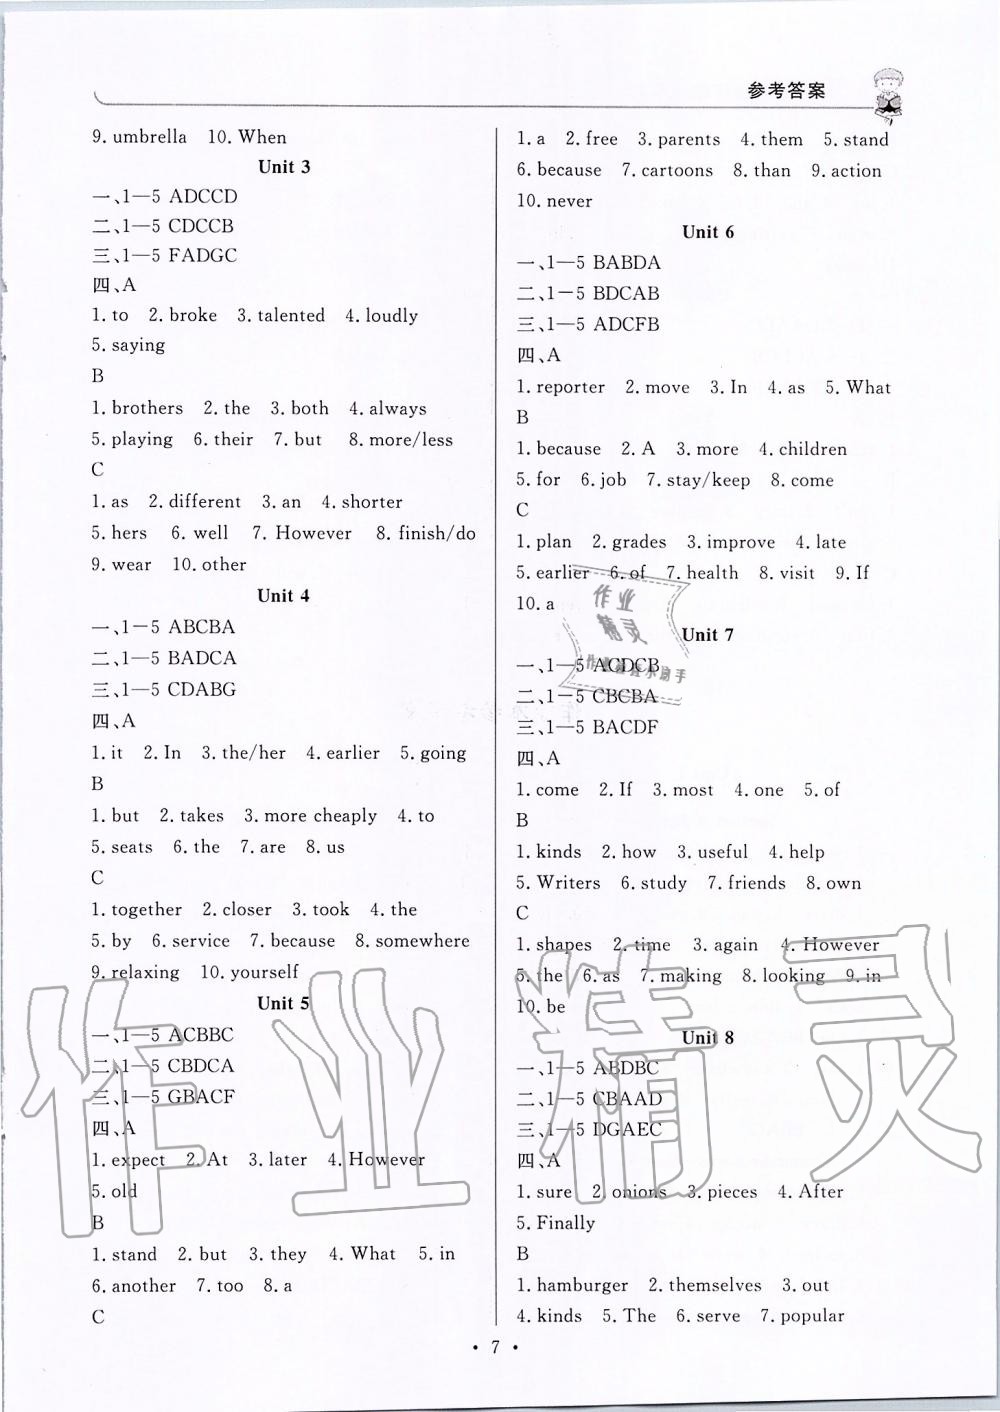 参考答案
9. umbrella 10. When
Unit 3
一、1—5 ADCCD
二、1—5 CDCCB
三、1—5 FADGC
四、A
1. to 2. broke 3. talented 4. loudly
5. saying
B
1. brothers 2. the 3. both 4. always
5. playing 6. their 7. but 8. more/less
C
1. as 2. different 3. an 4. shorter
5. hers 6. well 7. However 8. finish/do
9. wear 10. other
Unit 4
一、1—5 ABCBA
二、1—5 BADCA
三、1—5 CDABG
四、A
1. it 2. In 3. the/her 4. earlier 5. going
B
1. but 2. takes 3. more cheaply 4. to
5. seats 6. the 7. are 8. us
C
1. together 2. closer 3. took 4. the
5. by 6. service 7. because 8. somewhere
9. relaxing 10. yourself
Unit 5
一、1—5 ACBBC
二、1—5 CBDCA
三、1—5 GBACF
四、A
1. expect 2. At 3. later 4. However
5. old
B
1. stand 2. but 3. they 4. What 5. in
6. another 7. too 8. a
C
1. a 2. free 3. parents 4. them 5. stand
6. because 7. cartoons 8. than 9. action
10. never
Unit 6
一、1—5 BABDA
二、1—5 BDCAB
三、1—5 ADCFB
四、A
1. reporter 2. move 3. In 4. as 5. What
B
1. because 2. A 3. more 4. children
5. for 6. job 7. stay/keep 8. come
C
1. plan 2. grades 3. improve 4. late
5. earlier 6. of 7. health 8. visit 9. If
10. a
Unit 7
一、1—5 ACDCB
二、1—5 CBCBA
三、1—5 BACDF
四、A
1. come 2. If 3. most 4. one 5. of
B
1. kinds 2. how 3. useful 4. help
5. Writers 6. study 7. friends 8. own
C
1. shapes 2. time 3. again 4. However
5. the 6. as 7. making 8. looking 9. in
10. be
Unit 8
一、1—5 ABDBC
二、1—5 CBAAD
三、1—5 DGAEC
四、A
1. sure 2. onions 3. pieces 4. After
5. Finally
B
1. hamburger 2. themselves 3. out
4. kinds 5. The 6. serve 7. popular
• 7 •
作业
精灵
作业精灵